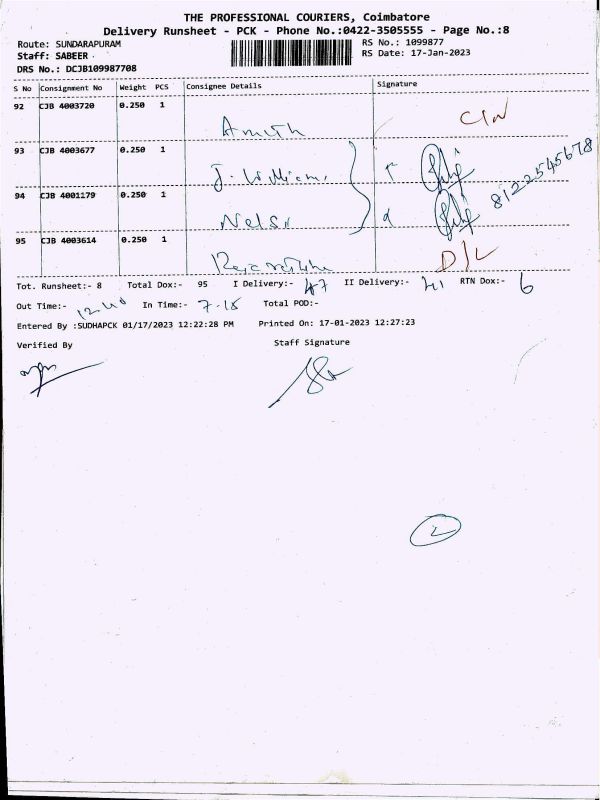 THE PROFESSIONAL COURIERS, Coimbatore
Delivery Runsheet - PCK - Phone No.:0422-3505555 - Page No.:8
Route: SUNDARAPURAM
RS No.: 1099877
Staff: SABEER
RS Date: 17-Jan-2023
DRS No.: DCJB109987708
S No Consignment No Weight PCS Consignee Details Signature
92 CJB 4003720 0.250 1
93 CJB 4003677 0.250 1
J. William
94 CJB 4001179 0.250 1 8122545678
Nelso
95 CJB 4003614 0.250 1
D/L
Tot. Runsheet:- 8 Total Dox:- 95 I Delivery:- 47 II Delivery:- 41 RTN Dox:- 6
Out Time:- 12.40 In Time:- 7.15 Total POD:-
Entered By :SUDHAPCK 01/17/2023 12:22:28 PM Printed On: 17-01-2023 12:27:23
Verified By Staff Signature